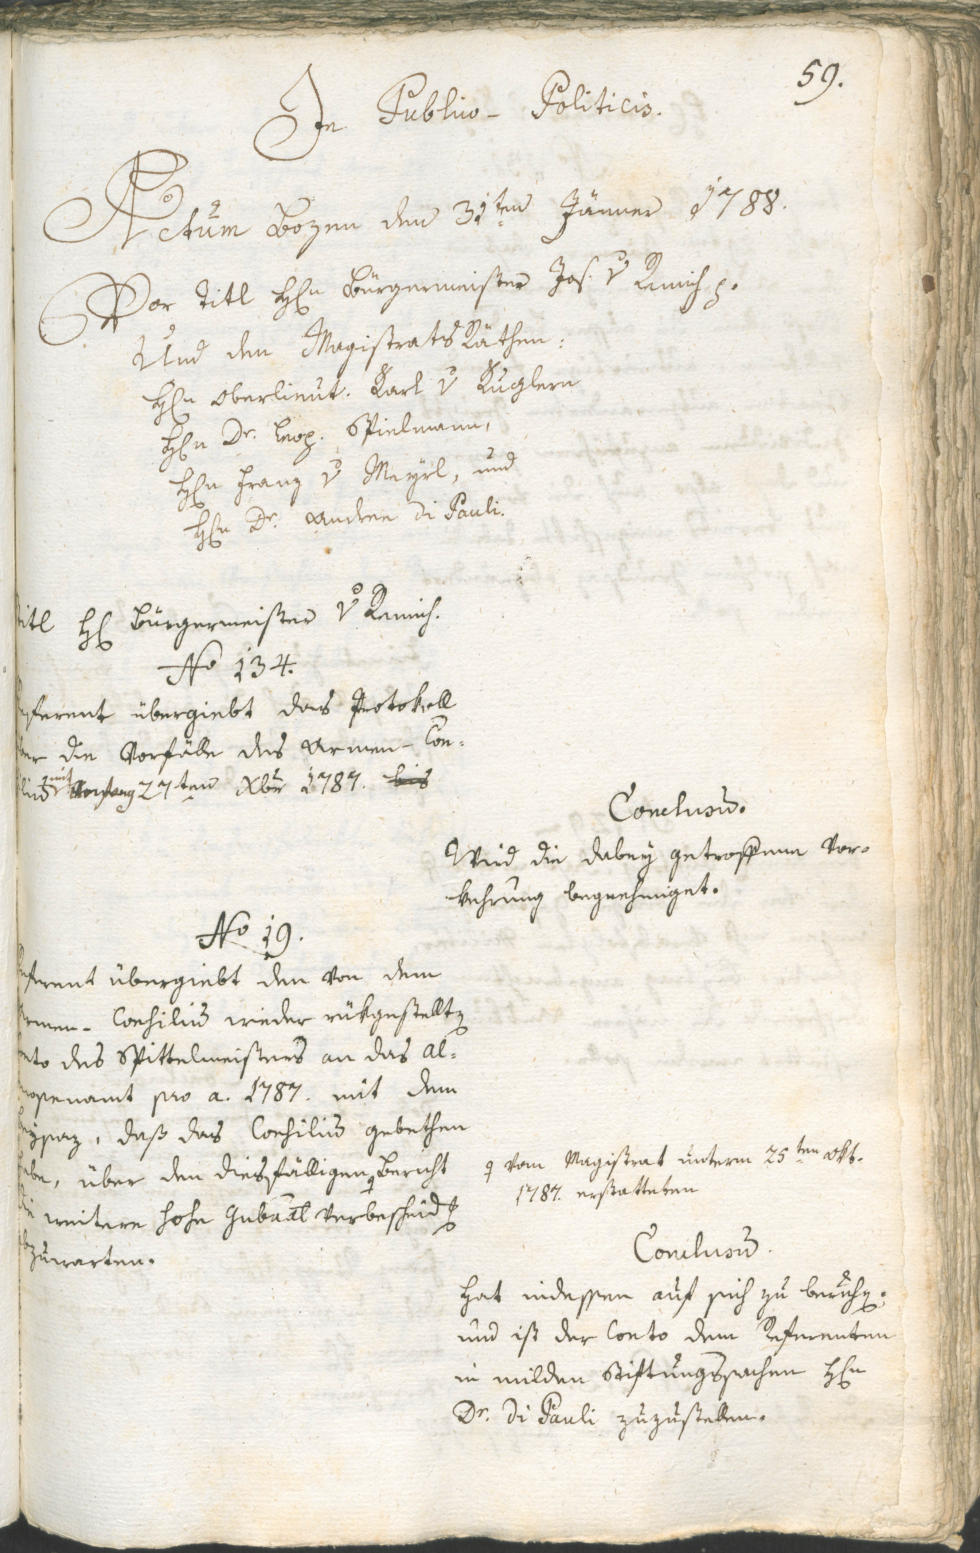 59.
In Publico-Politicis.
Actum Bozen den 31ten Jänner 1788.
Vor Titl Hℓn Bürgermeister Jos. v Remich p.
Und den Magistrats Räthen:
Hℓn Oberlieut. Karl v Kuglern
Hℓn Dr. Leop. Spielmann,
Hℓn Franz v Mayrl, und
Hℓn Dr. Andree di Pauli.
Titl Hℓ Bürgermeister v Remich.
No 134.
Referent übergiebt das Protokoll
über die Vorfälle des Armen-Con-
27ten Xber 1787. bis
Conclusum.
Wird die dabey getroffene Vor-
kehrung begnehmiget.
No 19.
Referent übergiebt den von dem
Armen-Consilium wieder rükgestellten
Conto des Spittelmeisters an das Al-
mosenamt pro a. 1787. mit dem
Beysaz, daß das Consilium gebethen
habe, über den diesfälligen Bericht
die weitere hohe Gubernal Verbescheidung
abzuwarten.
vom Magistrat unterm 25ten Okt.
1787. erstatteten
Conclusum.
Hat indessen auf sich zu beruhen;
und ist der Conto dem Referenten
in milden Stiftungssachen Hℓn
Dr. di Pauli zuzustellen.